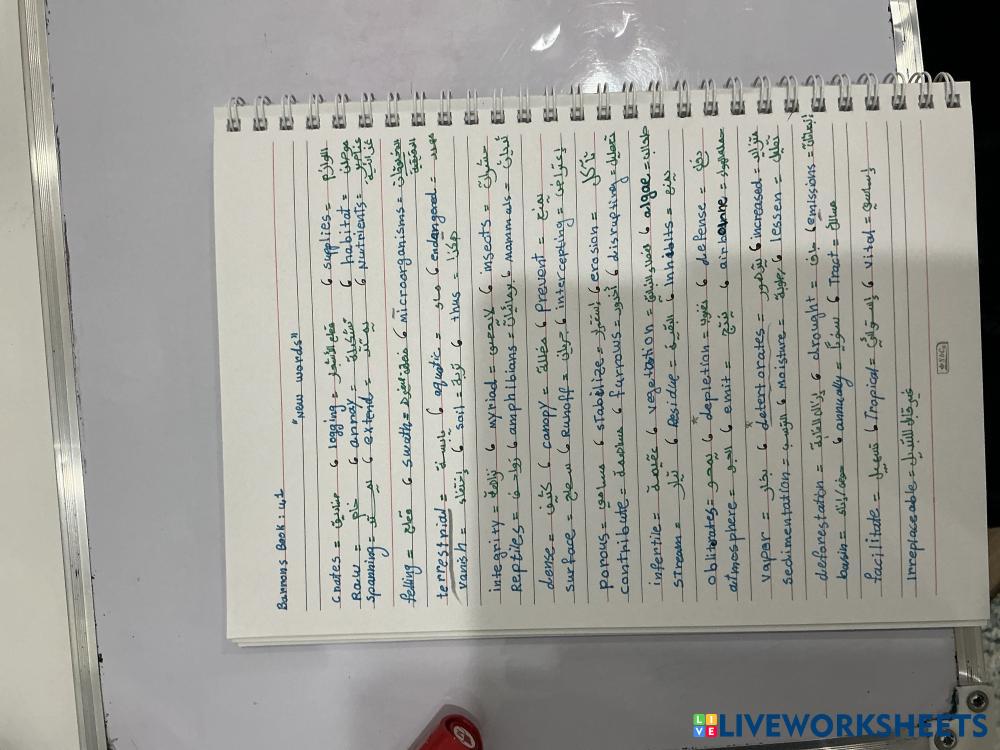 Barrons Book: 41
"New words"
crates = صناديق 6 logging = قطع الأشجار 6 supplies = اللوازم
Raw = خام 6 array = تشكيلة 6 habitat = موطن
spanning = 6 extend = يمتد 6 Nutrients =
felling = قطع 6 swath = 6 microorganisms = الكائنات الدقيقة
terrestrial = 6 aquatic = 6 endangered = مهدد
vanish = إختفاء 6 soil = تربة 6 thus = هكذا
integrity = نزاهة 6 myriad = لا تحصى 6 insects = حشرات
Reptiles = زواحف 6 amphibians = برمائيات 6 Mammals = ثدييات
dense = كثيف 6 canopy = مظلة 6 Prevent = يمنع
surface = سطح 6 Runoff = جريان 6 intercepting = إعتراض
Porous = مسامي 6 stabilize = إستقرار 6 erosion = تآكل
contribute = مساهمة 6 furrows = 6 disrupting = تعطيل
infertile = عقيمة 6 vegetation = 6 algae = طحالب
stream = تيار 6 Residue = 6 Inhibits = يمنع
obliterates = يمحو 6 depletion = نضوب 6 defense = دفاع
atmosphere = الجو 6 emit = 6 airborne =
vapor = بخار 6 deteriorates = يتدهور 6 increased =
sedimentation = الترسيب 6 Moisture = رطوبة 6 lessen = تقليل
deforestation = إزالة الغابات 6 drought = جفاف 6 emissions = إنبعاثات
basin = 6 annually = سنوياً 6 Tract =
facilitate = تسهيل 6 Tropical = إستوائي 6 vital =
Irreplaceable = غير قابل للتبديل
SYNC
LIVEWORKSHEETS